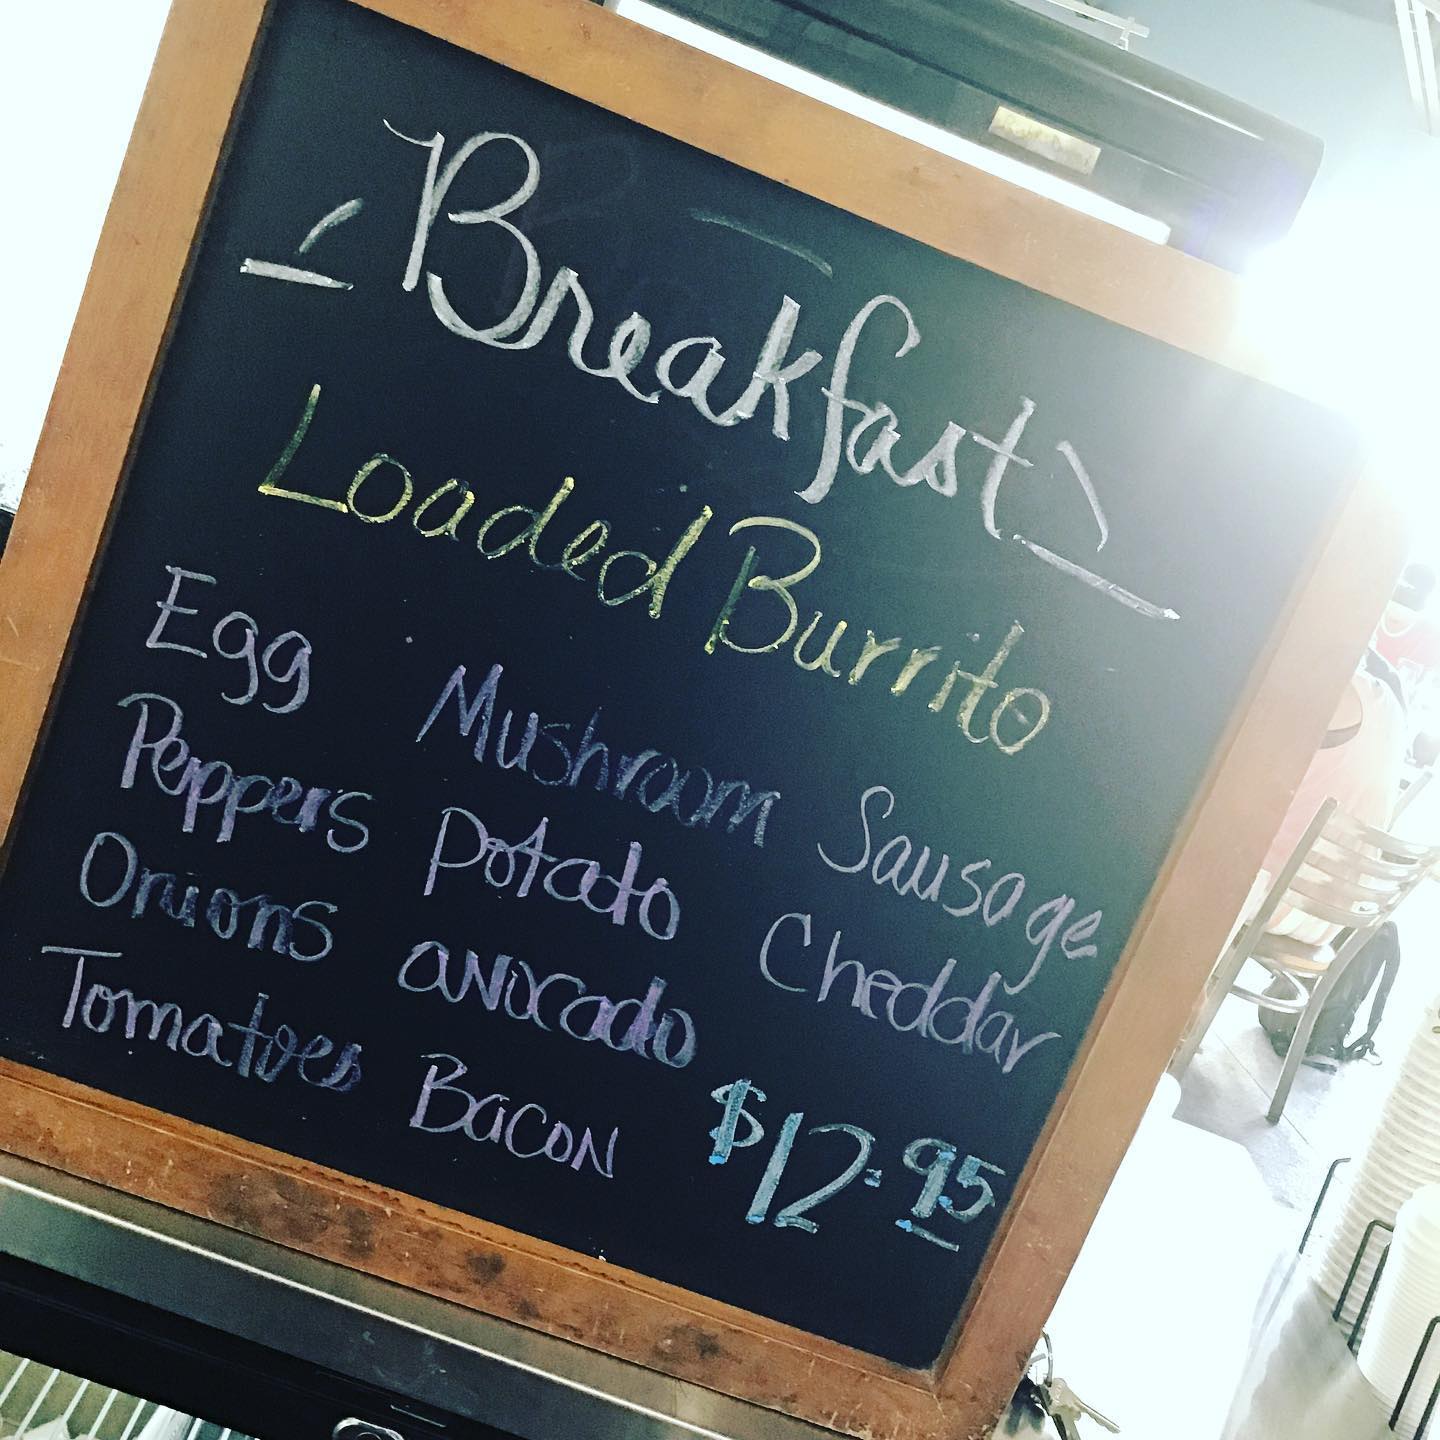 Breakfast
Loaded Burrito
Egg Mushroom Sausage
Peppers Potato Cheddar
Onions avocado
Tomatoes Bacon $12.95